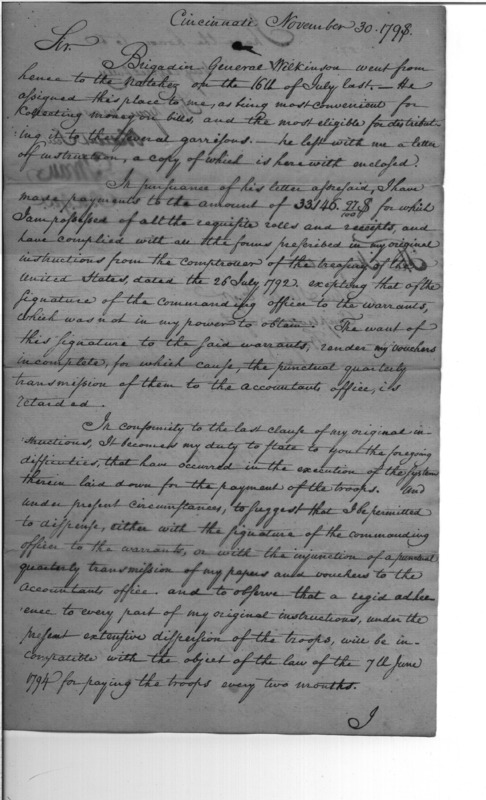 Cincinnati November 30. 1798.
Sir
Brigadier General Wilkinson went from
hence to the Natchez on the 16th of July last. — He
assigned this place to me, as being most convenient for
collecting money on bills, and the most eligible for distribut-
ing it to the several garrisons. — he left with me a letter
of instruction, a copy of which is herewith enclosed.
In pursuance of his letter aforesaid, I have
made payments to the amount of 33146. 97/100 $ for which
I am possessed of all the requisite rolls and receipts, and
have complied with all the forms prescribed in my original
instructions from the comptroller of the treasury of the
United States, dated the 26 July 1792. excepting that of the
signature of the commanding officer to the warrants,
which was not in my power to obtain. The want of
this signature to the said warrants, render my vouchers
incomplete, for which cause, the punctual quarterly
transmission of them to the accountants office, is
retarded.
In conformity to the last clause of my original in-
structions, It becomes my duty to state to you the foregoing
difficulties, that have occurred in the execution of the system
therein laid down for the payment of the troops. And
under present circumstances, to suggest that I be permitted
to dispense, either with the signature of the commanding
officer to the warrants, or with the injunction of a punctual
quarterly transmission of my papers and vouchers to the
accountants office. and to observe that a regid adher-
ence to every part of my original instructions, under the
present extensive dispersion of the troops, will be in-
compatible with the object of the law of the 7th June
1794 for paying the troops every two months.
I